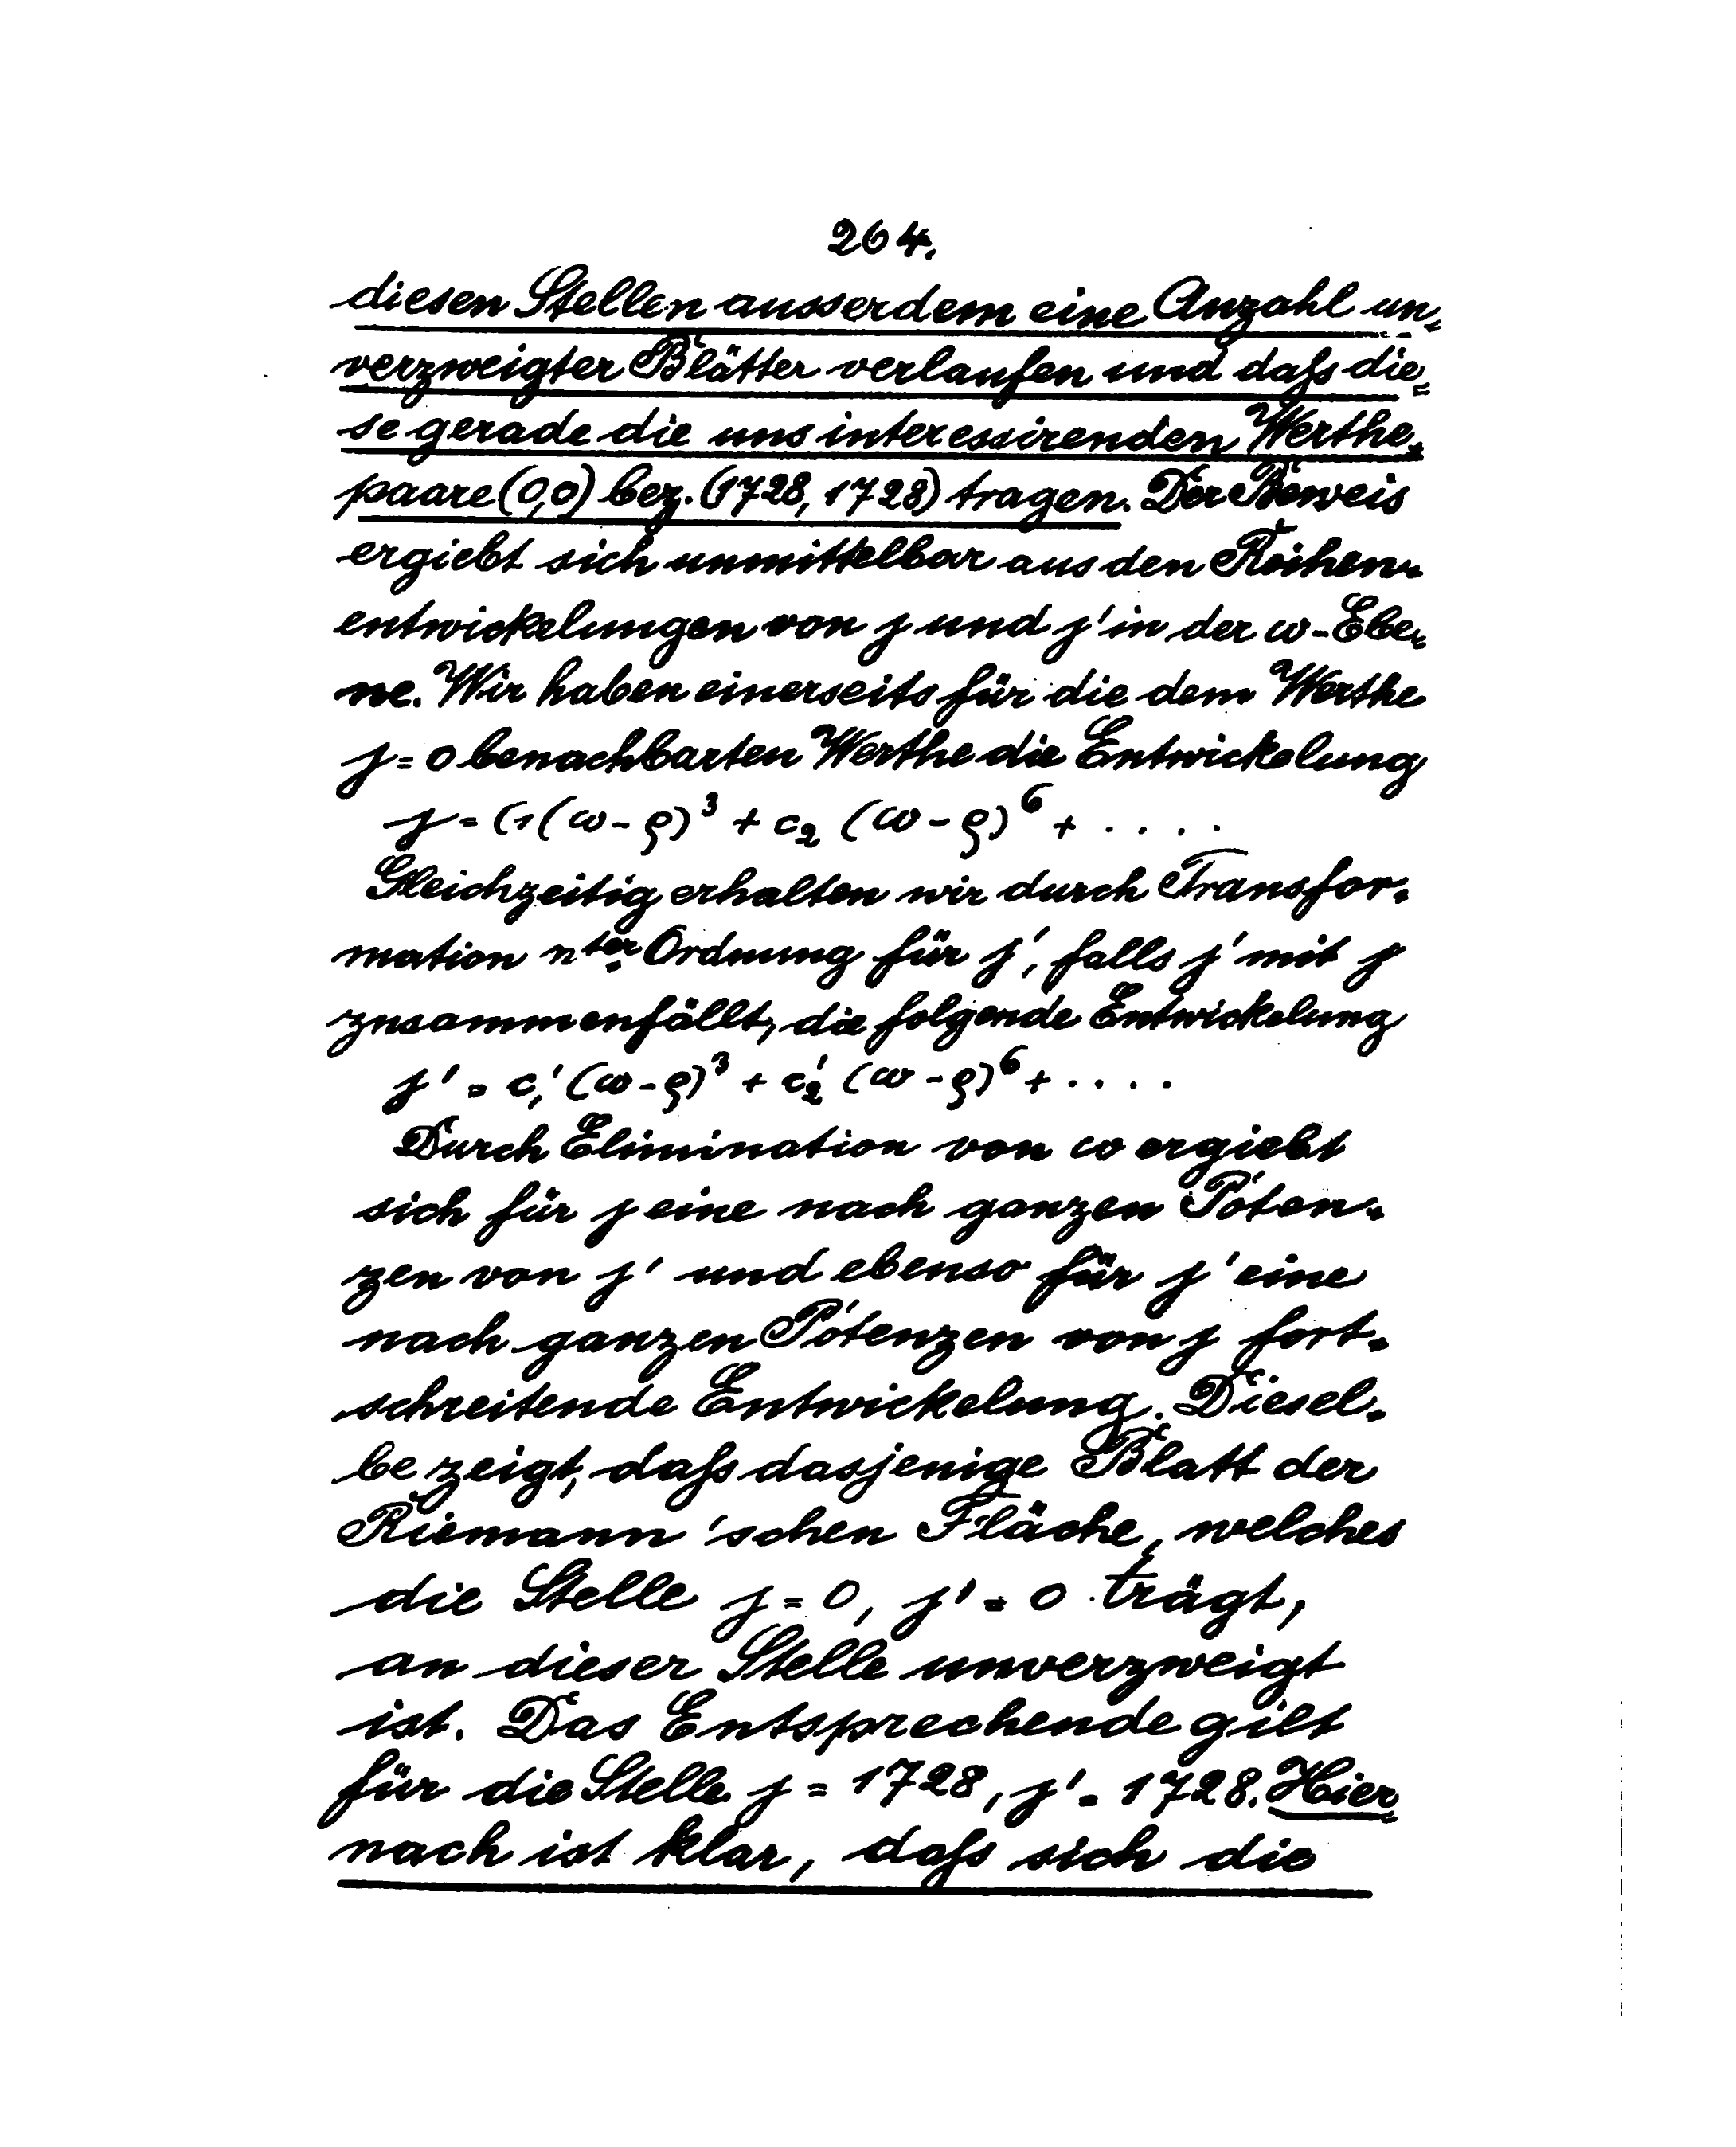 264.
diesen Stellen ausserdem eine Anzahl un=
verzweigter Blätter verlaufen und daſs die=
se gerade die uns interessirenden Werthe=
paare (0,0) bez. (1728, 1728) tragen. Der Beweis
ergiebt sich unmittelbar aus den Reihen=
entwickelungen von j und j' in der ω-Ebe=
ne. Wir haben einerseits für die dem Werthe
j = 0 benachbarten Werthe die Entwickelung
j = c₁(ω - ϱ)³ + c₂ (ω - ϱ)⁶ + ....
Gleichzeitig erhalten wir durch Transfor=
mation nter Ordnung für j', falls j' mit j
zusammenfällt, die folgende Entwickelung
j' = c₁'(ω - ϱ)³ + c₂' (ω - ϱ)⁶ + ....
Durch Elimination von ω ergiebt
sich für j eine nach ganzen Poten=
zen von j' und ebenso für j' eine
nach ganzen Potenzen von j fort=
schreitende Entwickelung. Diesel=
be zeigt, daſs dasjenige Blatt der
Riemann'schen Fläche, welches
die Stelle j = 0, j' = 0 trägt,
an dieser Stelle unverzweigt
ist. Das Entsprechende gilt
für die Stelle j = 1728, j' = 1728. Hier=
nach ist klar, daſs sich die